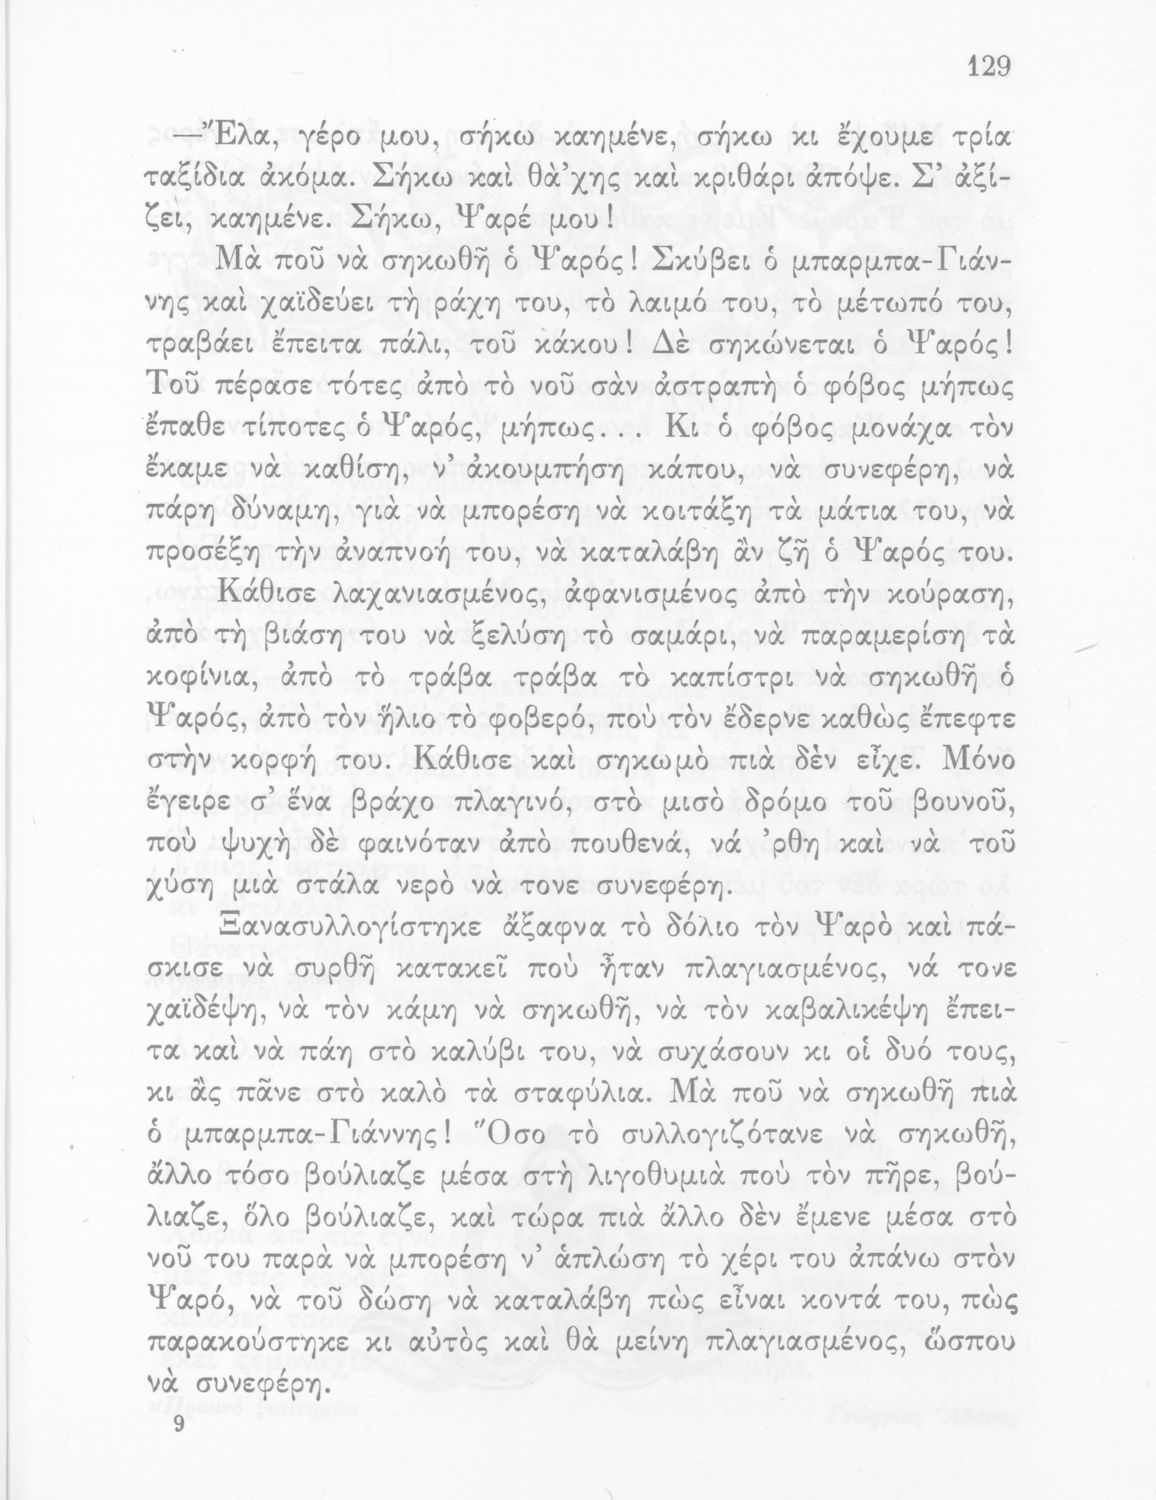 129
—Ἔλα, γέρο μου, σήκω καημένε, σήκω κι ἔχουμε τρία
ταξίδια ἀκόμα. Σήκω καὶ θὰ’χης καὶ κριθάρι ἀπόψε. Σ’ ἀξί-
ζει, καημένε. Σήκω, Ψαρέ μου!
Μὰ ποῦ νὰ σηκωθῆ ὁ Ψαρός! Σκύβει ὁ μπαρμπα-Γιάν-
νης καὶ χαϊδεύει τὴ ράχη του, τὸ λαιμό του, τὸ μέτωπό του,
τραβάει ἔπειτα πάλι, τοῦ κάκου! Δὲ σηκώνεται ὁ Ψαρός!
Τοῦ πέρασε τότες ἀπὸ τὸ νοῦ σὰν ἀστραπὴ ὁ φόβος μήπως
ἔπαθε τίποτες ὁ Ψαρός, μήπως... Κι ὁ φόβος μονάχα τὸν
ἔκαμε νὰ καθίση, ν’ ἀκουμπήση κάπου, νὰ συνεφέρη, νὰ
πάρη δύναμη, γιὰ νὰ μπορέση νὰ κοιτάξη τὰ μάτια του, νὰ
προσέξη τὴν ἀναπνοή του, νὰ καταλάβη ἂν ζῆ ὁ Ψαρός του.
Κάθισε λαχανιασμένος, ἀφανισμένος ἀπὸ τὴν κούραση,
ἀπὸ τὴ βιάση του νὰ ξελύση τὸ σαμάρι, νὰ παραμερίση τὰ
κοφίνια, ἀπὸ τὸ τράβα τράβα τὸ καπίστρι νὰ σηκωθῆ ὁ
Ψαρός, ἀπὸ τὸν ἥλιο τὸ φοβερό, ποὺ τὸν ἔδερνε καθὼς ἔπεφτε
στὴν κορφή του. Κάθισε καὶ σηκωμὸ πιὰ δὲν εἶχε. Μόνο
ἔγειρε σ’ ἕνα βράχο πλαγινό, στὸ μισὸ δρόμο τοῦ βουνοῦ,
ποὺ ψυχὴ δὲ φαινόταν ἀπὸ πουθενά, νά ’ρθη καὶ νὰ τοῦ
χύση μιὰ στάλα νερὸ νὰ τονε συνεφέρη.
Ξανασυλλογίστηκε ἄξαφνα τὸ δόλιο τὸν Ψαρὸ καὶ πά-
σκισε νὰ συρθῆ κατακεῖ ποὺ ἦταν πλαγιασμένος, νά τονε
χαϊδέψη, νὰ τὸν κάμη νὰ σηκωθῆ, νὰ τὸν καβαλικέψη ἔπει-
τα καὶ νὰ πάη στὸ καλύβι του, νὰ συχάσουν κι οἱ δυό τους,
κι ἂς πᾶνε στὸ καλὸ τὰ σταφύλια. Μὰ ποῦ νὰ σηκωθῆ πιὰ
ὁ μπαρμπα-Γιάννης! Ὅσο τὸ συλλογιζότανε νὰ σηκωθῆ,
ἄλλο τόσο βούλιαζε μέσα στὴ λιγοθυμιὰ ποὺ τὸν πῆρε, βού-
λιαζε, ὅλο βούλιαζε, καὶ τώρα πιὰ ἄλλο δὲν ἔμενε μέσα στὸ
νοῦ του παρὰ νὰ μπορέση ν’ ἁπλώση τὸ χέρι του ἀπάνω στὸν
Ψαρό, νὰ τοῦ δώση νὰ καταλάβη πὼς εἶναι κοντά του, πὼς
παρακούστηκε κι αὐτὸς καὶ θὰ μείνη πλαγιασμένος, ὥσπου
νὰ συνεφέρη.
9